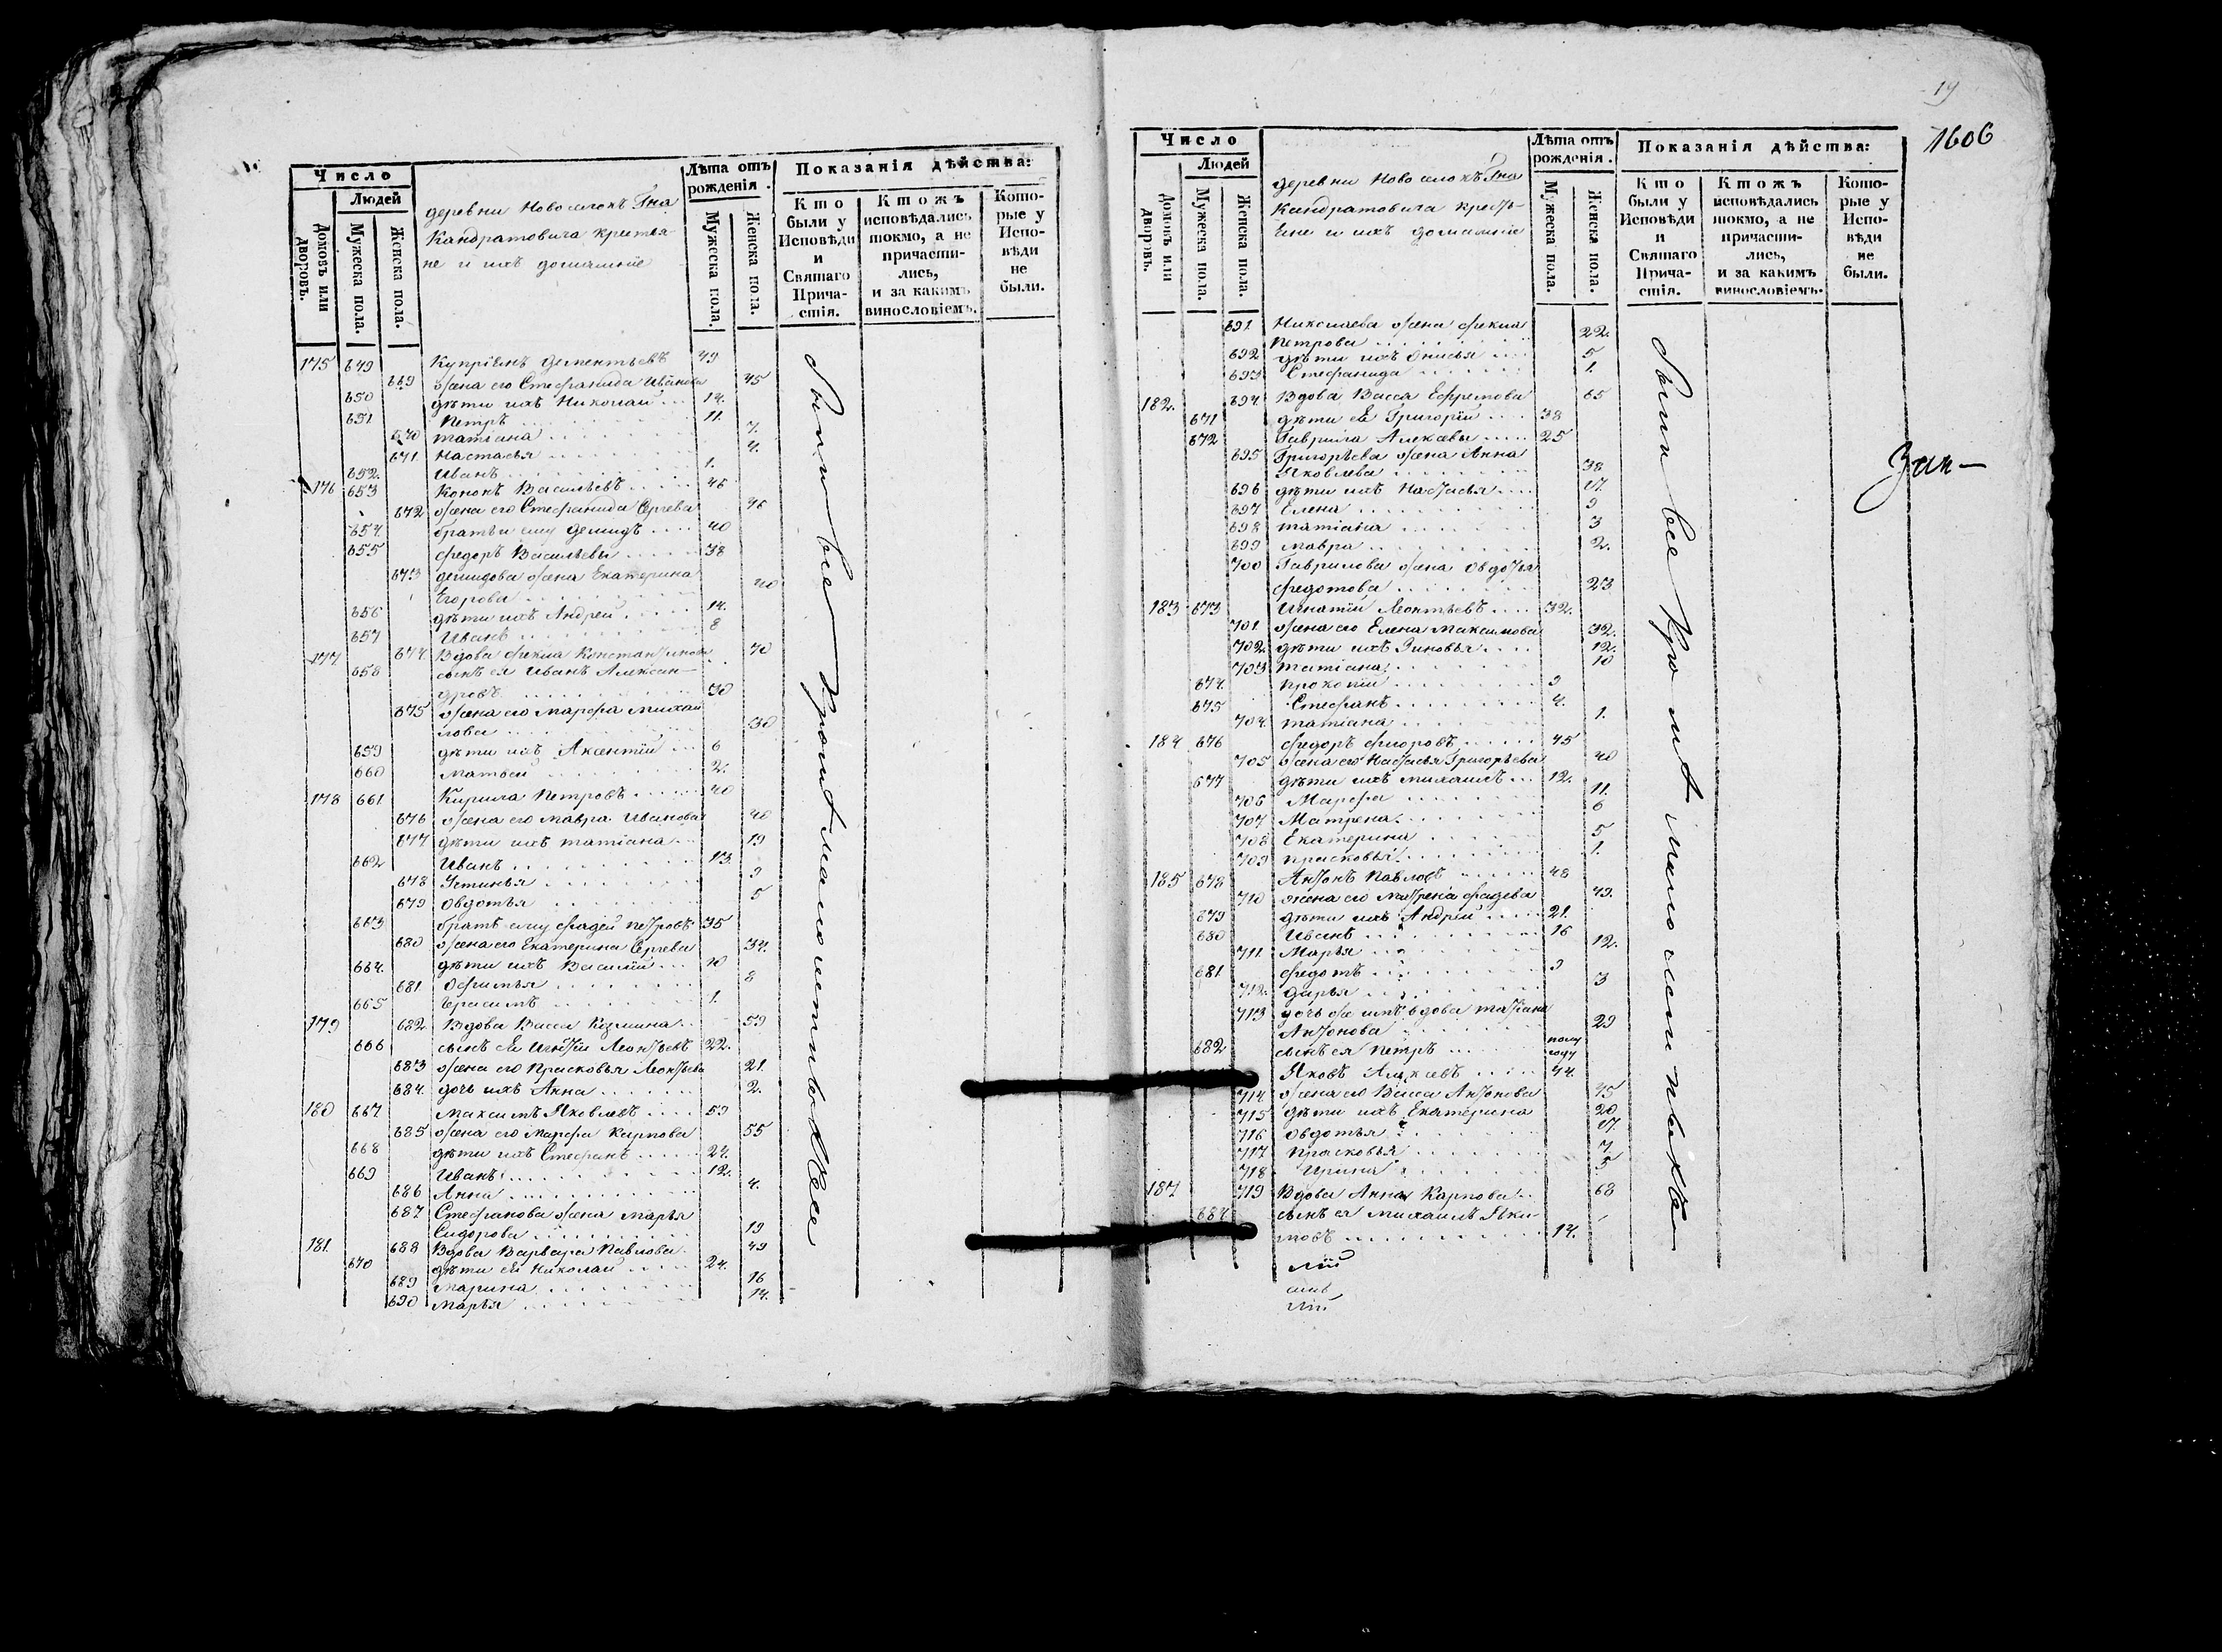 Число
Людей
Домовъ или дворовъ.
Мужеска пола.
Женска пола.
деревни Новоселокъ Гна
Кандратовича кретья-
не и ихъ домашніе
Лѣта отъ рожденія.
Мужеска пола.
Женска пола.
Показанія дѣйства:
Кто были у Исповѣди и Святаго Прича- стія.
Ктожъ исповѣдались токмо, а не причасти- лись, и за какимъ винословіемъ.
Кото- рые у Испо- вѣди не были.
175 649 Купріянъ Дементьевъ 49
669 жена его Стефанида Иванова 45
650 дѣти ихъ Николай 14.
651 Петръ 11.
670 татіана 7.
671 Настасья 4.
652. Иванъ 1.
176 653 Кононъ Васильевъ 46
672 жена его Стефанида Сергева 46
654. братьи ему Демидъ 40
655 Федоръ Васильевы 38
673 демидова жена Екатерина
Егорова 40
656 дѣти ихъ Андрей 14.
657 Иванъ 8
177 674 Вдова Фекла Константинова 70
658 сынъ ея Иванъ Алексан-
дровъ 30
675 жена его Марфа Михаи
лова 30
659 дѣти ихъ Аксентій 6
660 Матвей 2.
178 661 Кирила Петровъ 40
676 жена его Мавра Иванова 40
677 дѣти ихъ татіана 19
662 Иванъ 13.
678 Устинья 9
679 Овдотья 5
663 братъ ему Фадей Петровъ 35
680 жена его Екатерина Сергева 34.
664. дѣти ихъ Василій 10
681 Офимья 8
665 Герасимъ 1.
179 682 Вдова Васса Козмина 59
666 сынъ ея Игнатій Леонтьевъ 22.
683 жена его Прасковья Леонтьева 21.
684. дочь ихъ Анна 2.
180 667 Максимъ Яковлевъ 59
685 жена его Марфа Карпова 55
668 дѣти ихъ Стефанъ 24.
669 Иванъ 12.
686 Анна 4.
687 Стефанова жена Марья
Сидорова 19
181. 688 Вдова Варвара Павлова 49
670 дѣти ея Николай 24.
689 Марина 16
690 Марья 14.
19
1606
Число
Людей
Домовъ или дворовъ.
Мужеска пола.
Женска пола.
деревни Новоселокъ Гна
Кандратовича кресть-
яне и ихъ домашніе
Лѣта отъ рожденія.
Мужеска пола.
Женска пола.
Показанія дѣйства:
Кто были у Исповѣди и Святаго Прича- стія.
Ктожъ исповѣдались токмо, а не причасти- лись, и за какимъ винословіемъ.
Кото- рые у Испо- вѣди не были.
691 Николаева жена Фекла
Петрова 22.
692 дѣти ихъ Онисья 5
693 Стефанида 1.
182. 694. Вдова Васса Ефремова 65
671 дѣти ея Григорій 38
672 Гаврила Алексѣевы 25
695 Григорьева жена Анна
Яковлева 38
696 дѣти ихъ Настасья 17.
697 Елена 9
698 татіана 3
699 Мавра 2.
700 Гаврилова жена Овдотья
Федотова 23
183 673 Игнатій Леонтьевъ 32.
701. жена его Елена Максимова 32.
702. дѣти ихъ Зиновья 12.
703 татіана 10
674. Прокопій 9
675 Стефанъ 4.
704. татіана 1.
184 676 Федоръ Фроловъ 45
705 жена его Настасья Григорьева 40
677 дѣти ихъ Михаилъ 12.
706 Марфа 11.
707 Матрена 6
708 Екатерина 5
709 прасковья 1.
185 678 Антонъ Павловъ 48
710 жена его Матрена Фадева 49.
679 дѣти ихъ Андрей 21.
680 Иванъ 16
711. Марья 12.
681 Федотъ 9
712. Дарья 3
713 дочь же имъ вдова татіана
Антонова 29
682 сынъ ея Петръ полу году
Яковъ Алексѣевъ 44.
714. жена его Васса Антонова 45
715 дѣти ихъ Екатерина 20
716 Овдотья 17.
717 Прасковья 7
718 Ирина 5
187 719 Вдова Анна Карпова 68
684. сынъ ея Михаилъ Яки-
мовъ 14.
Были все кромѣ малолетныхъ